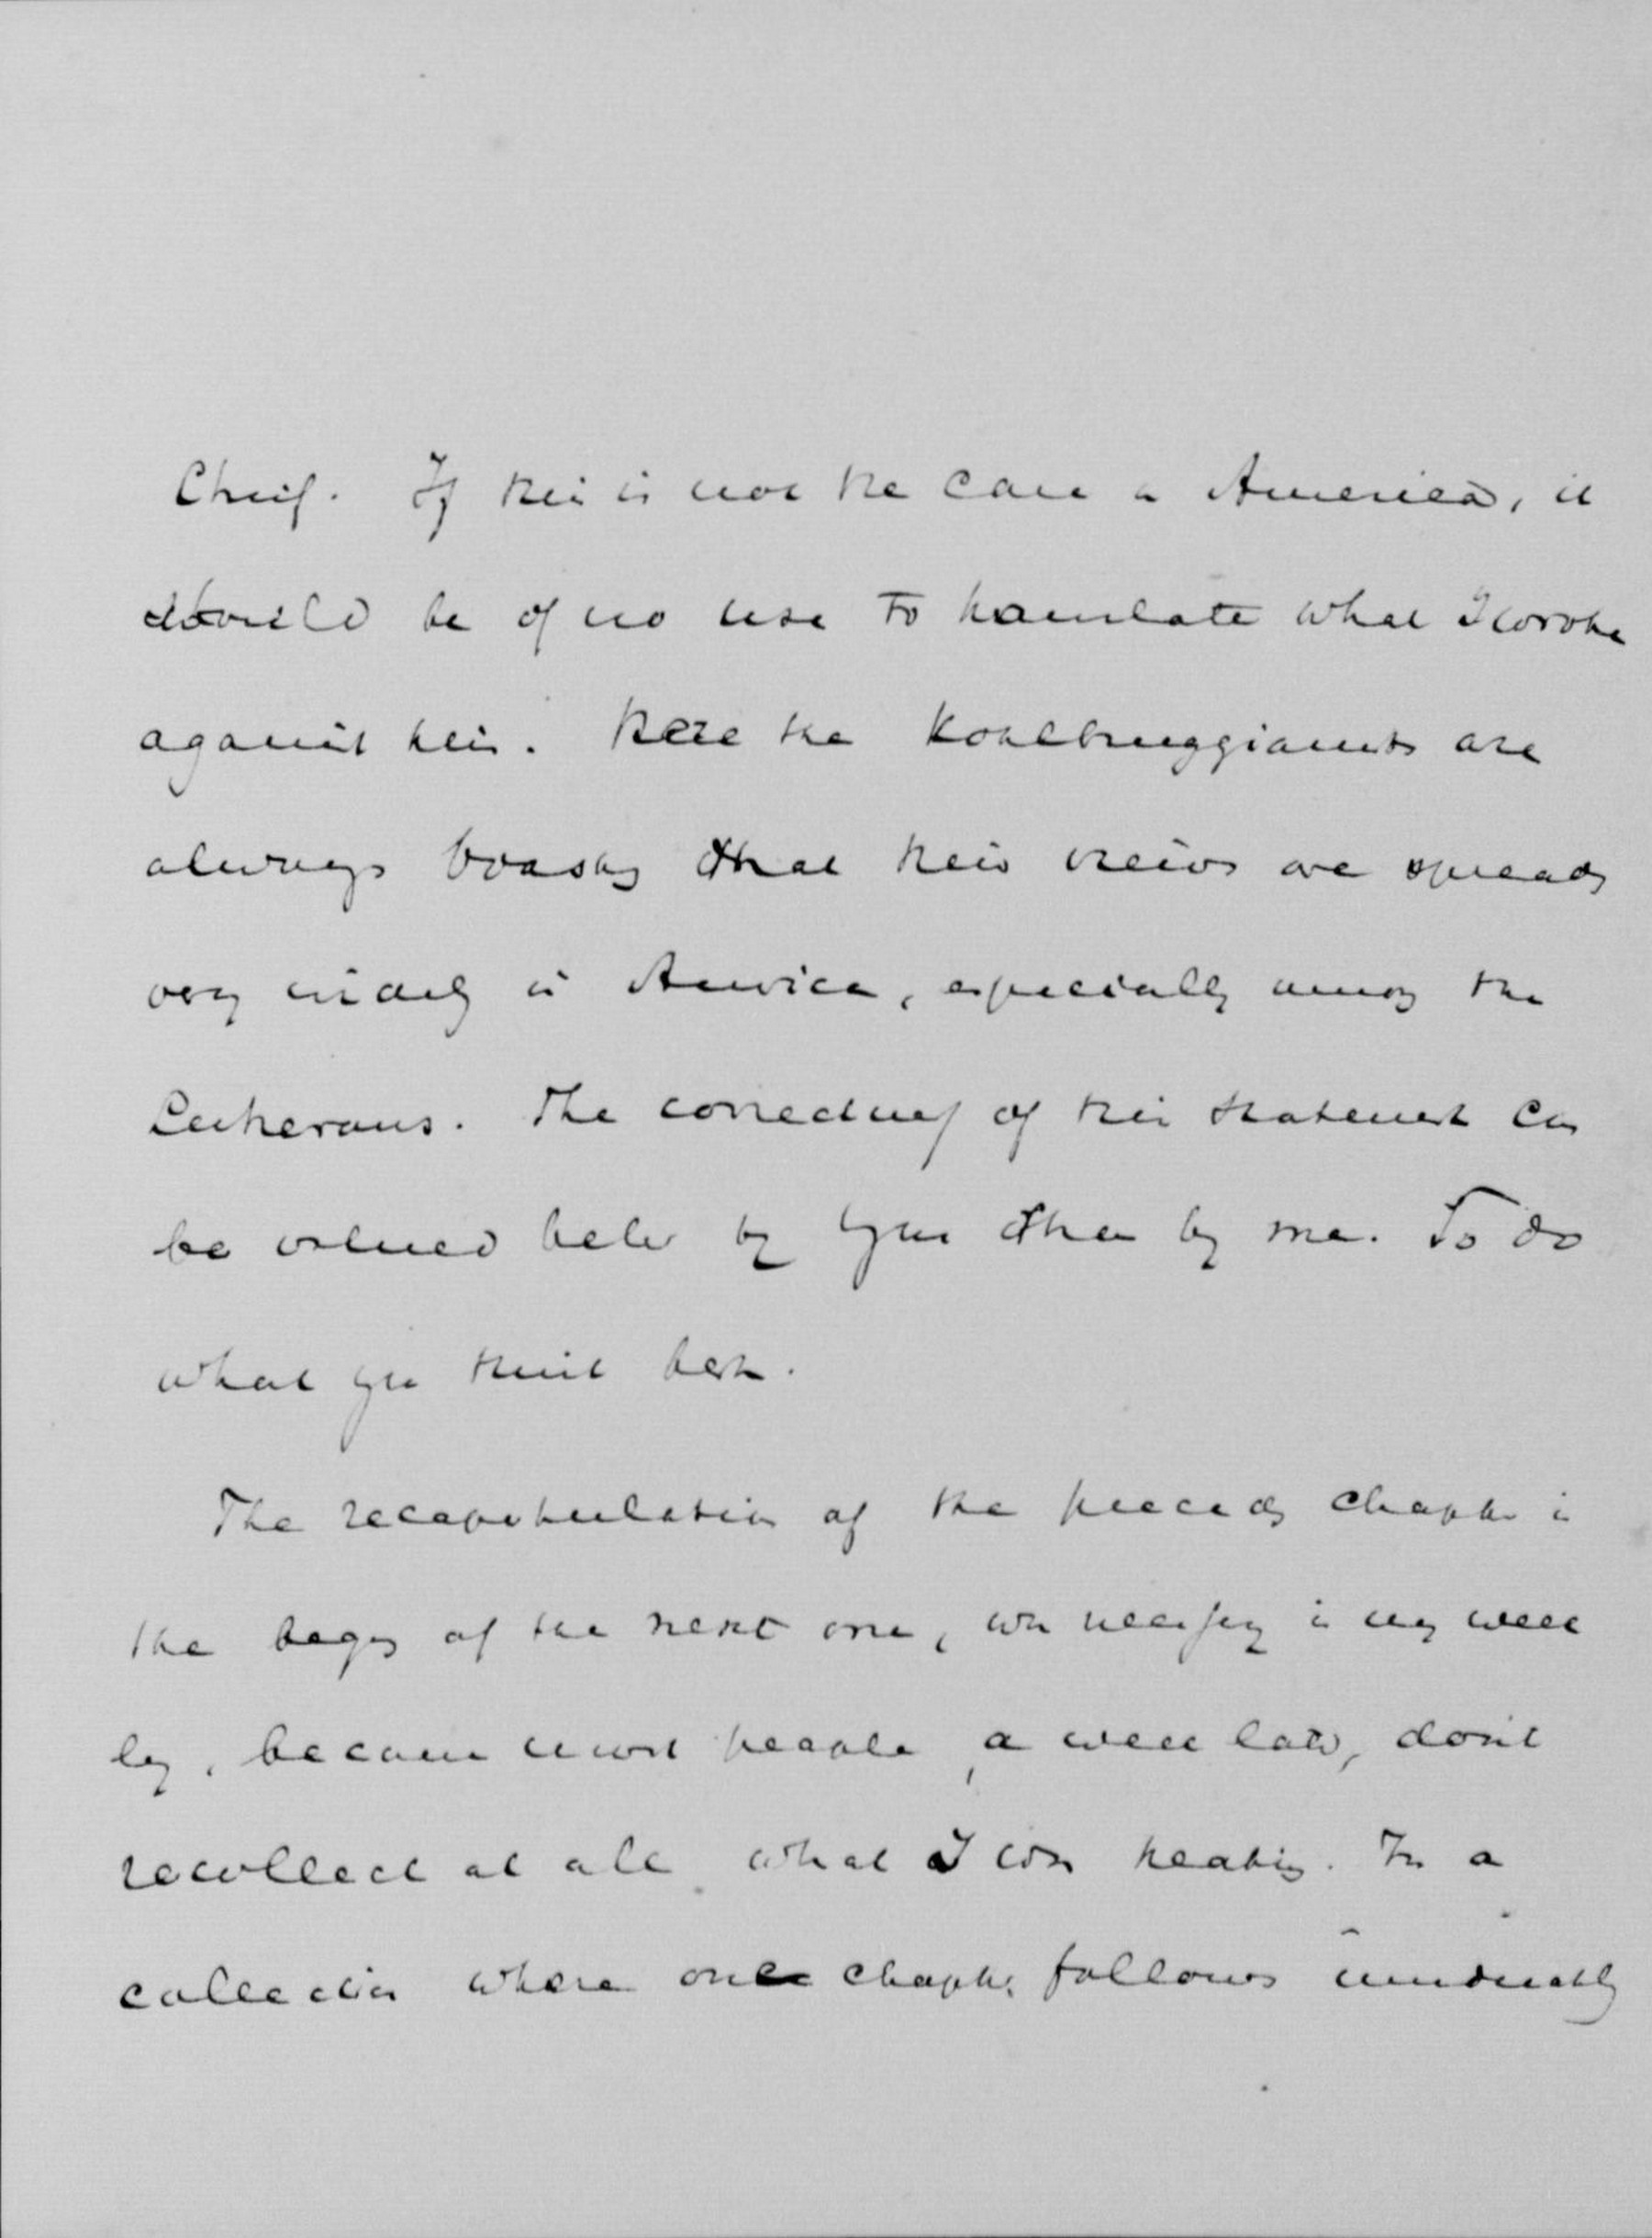 If this is not the case in America, it
should be of no use to translate what I wrote
against this. Here the Kohlbruggianists are
always boasting that their views are spreading
very widely in America, especially among the
Lutherans. The correctness of this statement can
be valued better by you than by me. So do
what you think best.
The recapitulation of the preceding chapter in
the beging of the next one, was necessary in my week
ly, because most people, a week later, don't
recollect at all what I was treating. In a
collection where one chapter follows immediately